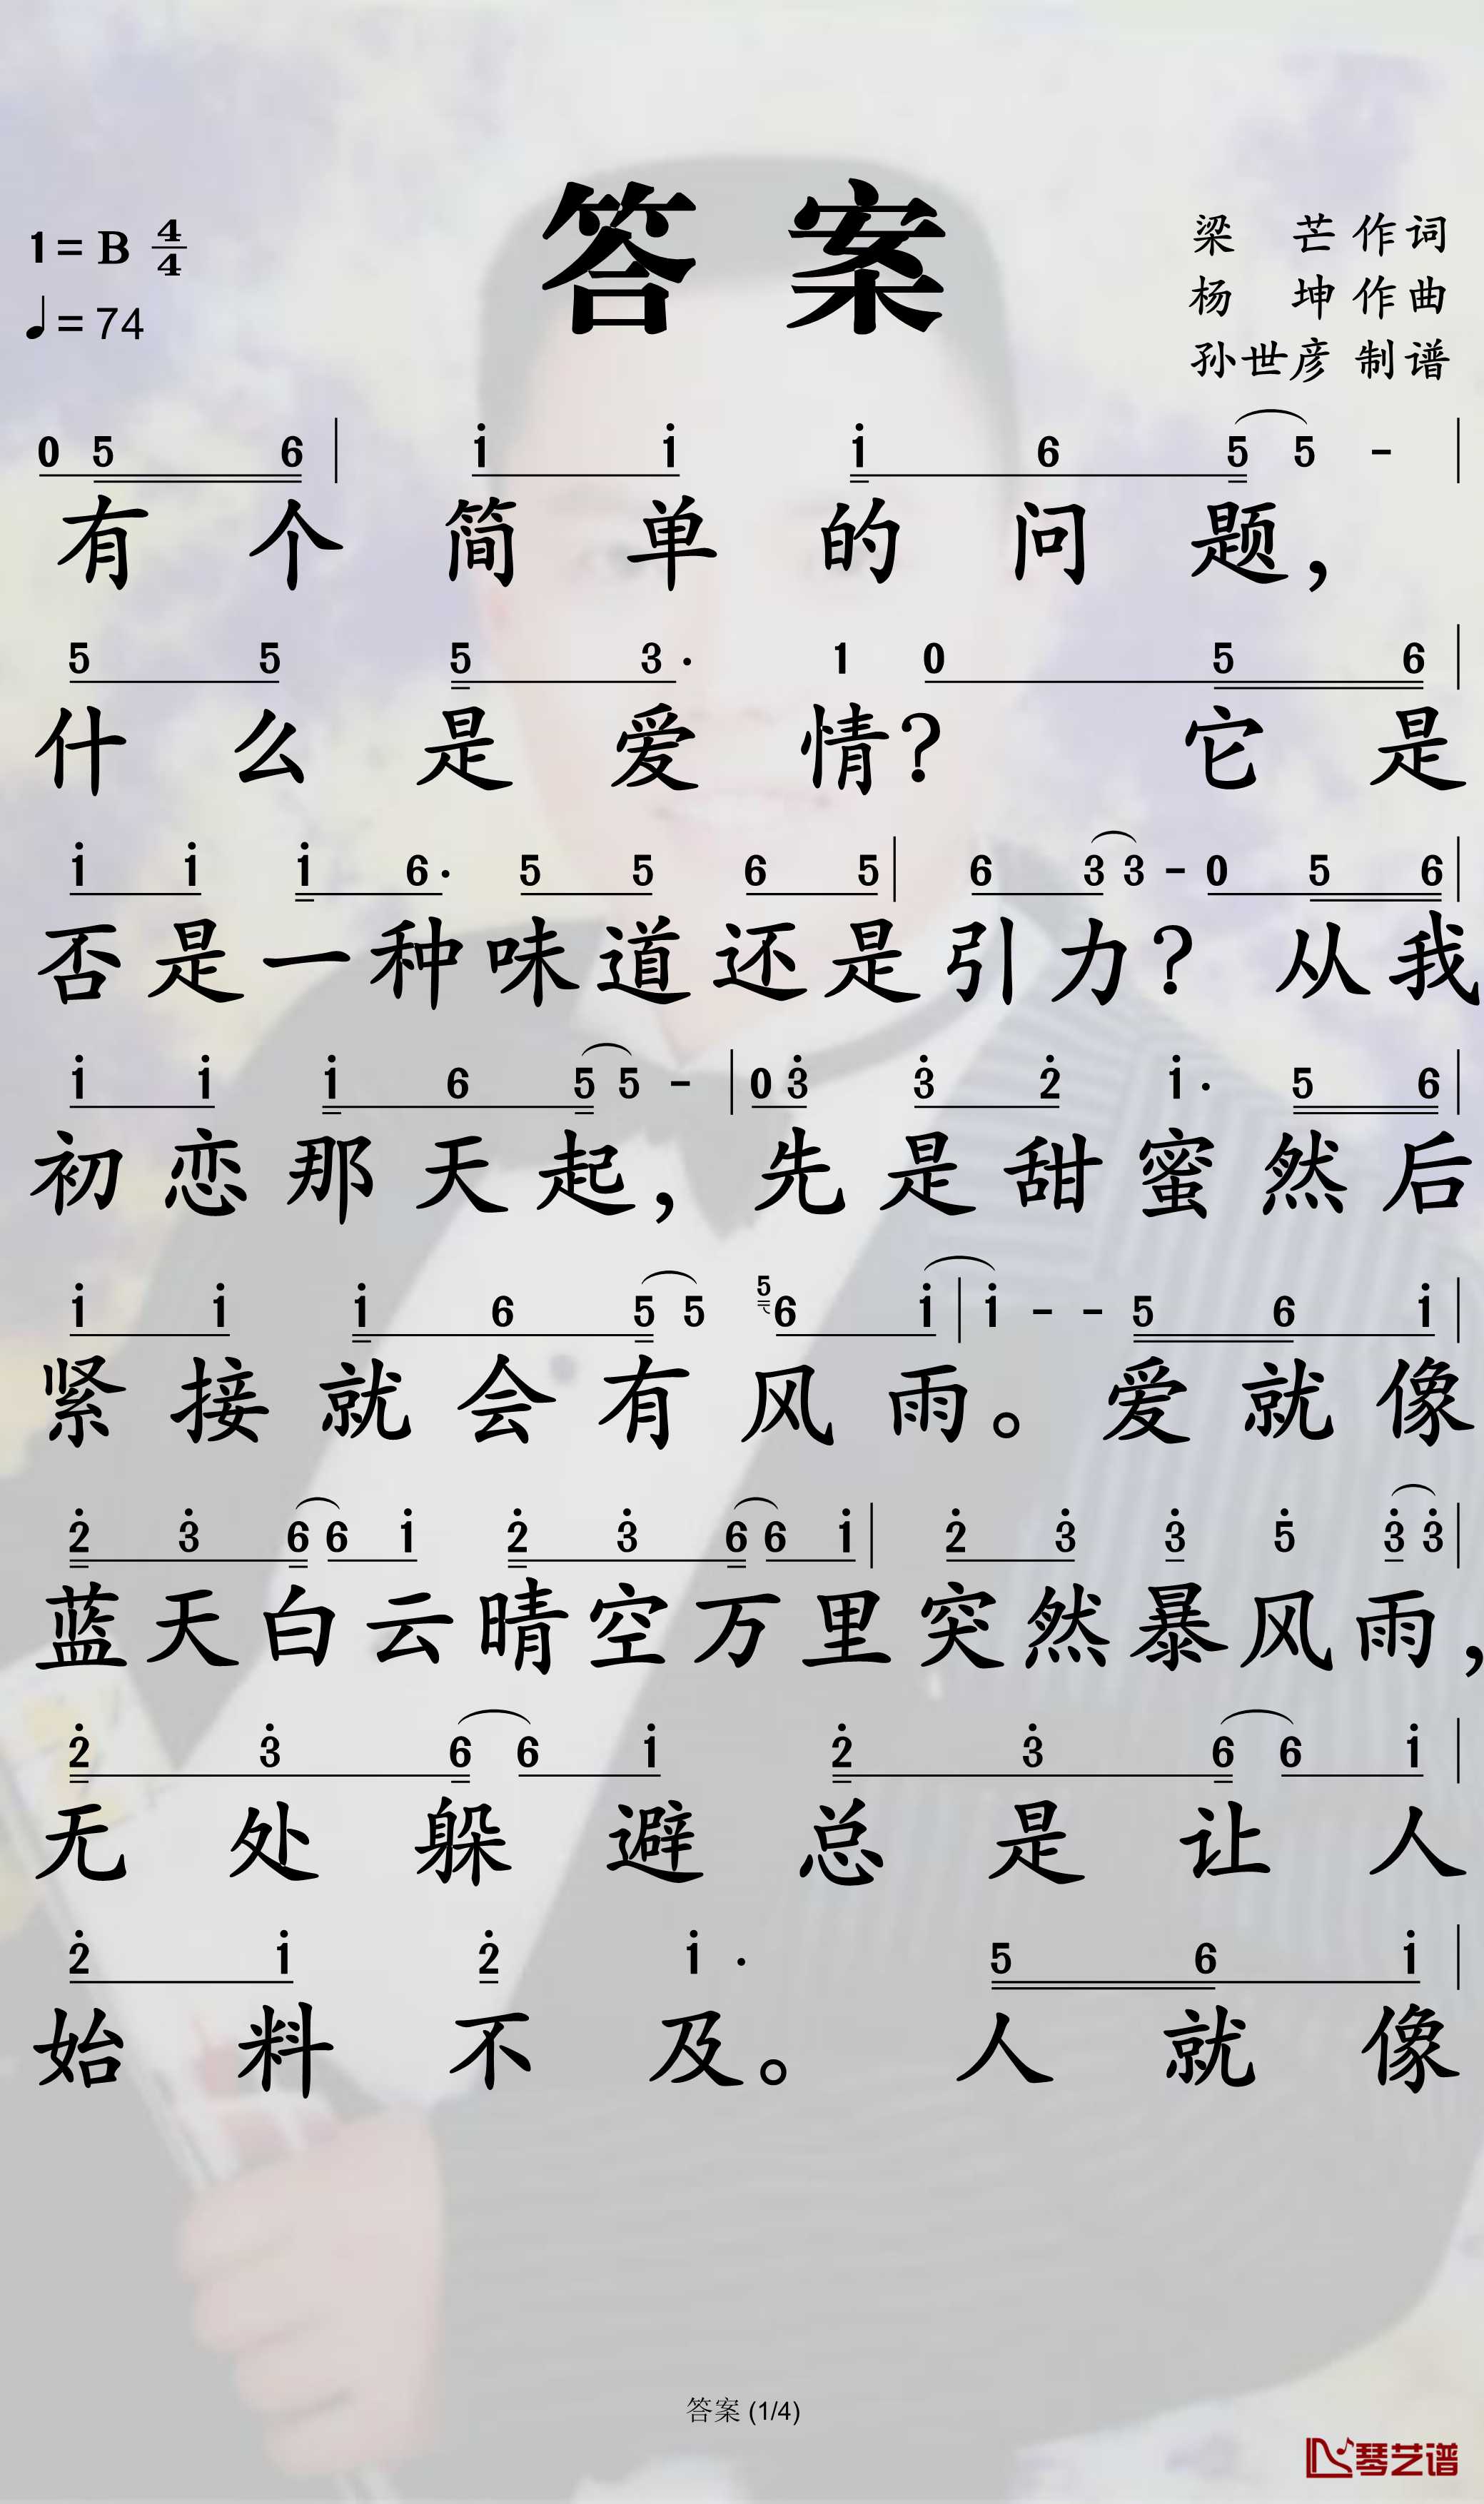 答案
1=B 4/4
♩=74
梁 芒 作词
杨 坤 作曲
孙世彦 制谱
0 5 6 | i i i 6 5 5 - |
有个简单的问题，
5 5 5 3· 1 0 5 6 |
什么是爱情？ 它是
i i i 6· 5 5 6 5 | 6 3 3 - 0 5 6 |
否是一种味道还是引力？从我
i i i 6 5 5 - | 0 3̇ 3̇ 2̇ i· 5 6 |
初恋那天起，先是甜蜜然后
i i i 6 5 5 5 6 i | i - - 5 6 i |
紧接就会有风雨。爱就像
2̇ 3̇ 6 6 i 2̇ 3̇ 6 6 i | 2̇ 3̇ 3̇ 5̇ 3̇ 3̇ |
蓝天白云晴空万里突然暴风雨，
2̇ 3̇ 6 6 i 2̇ 3̇ 6 6 i |
无处躲避总是让人
2̇ i 2̇ i· 5 6 i |
始料不及。 人就像
答案 (1/4)
琴艺谱